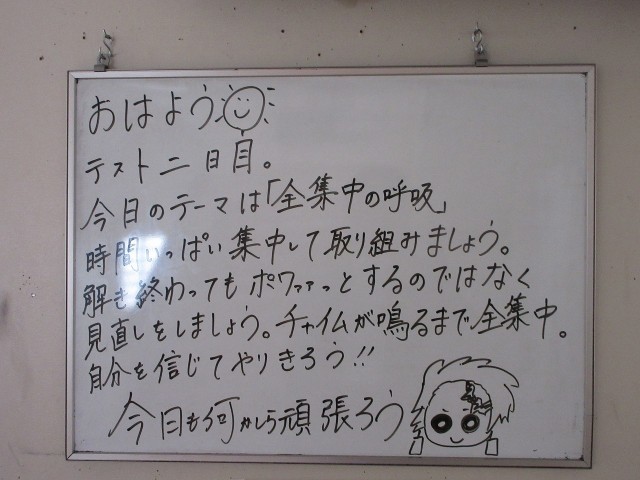 おはよう
テスト二日目。
今日のテーマは「全集中の呼吸」
時間いっぱい集中して取り組みましょう。
解き終わってもポワァァっとするのではなく
見直しをしましょう。チャイムが鳴るまで全集中。
自分を信じてやりきろう!!
今日も何かしら頑張ろう